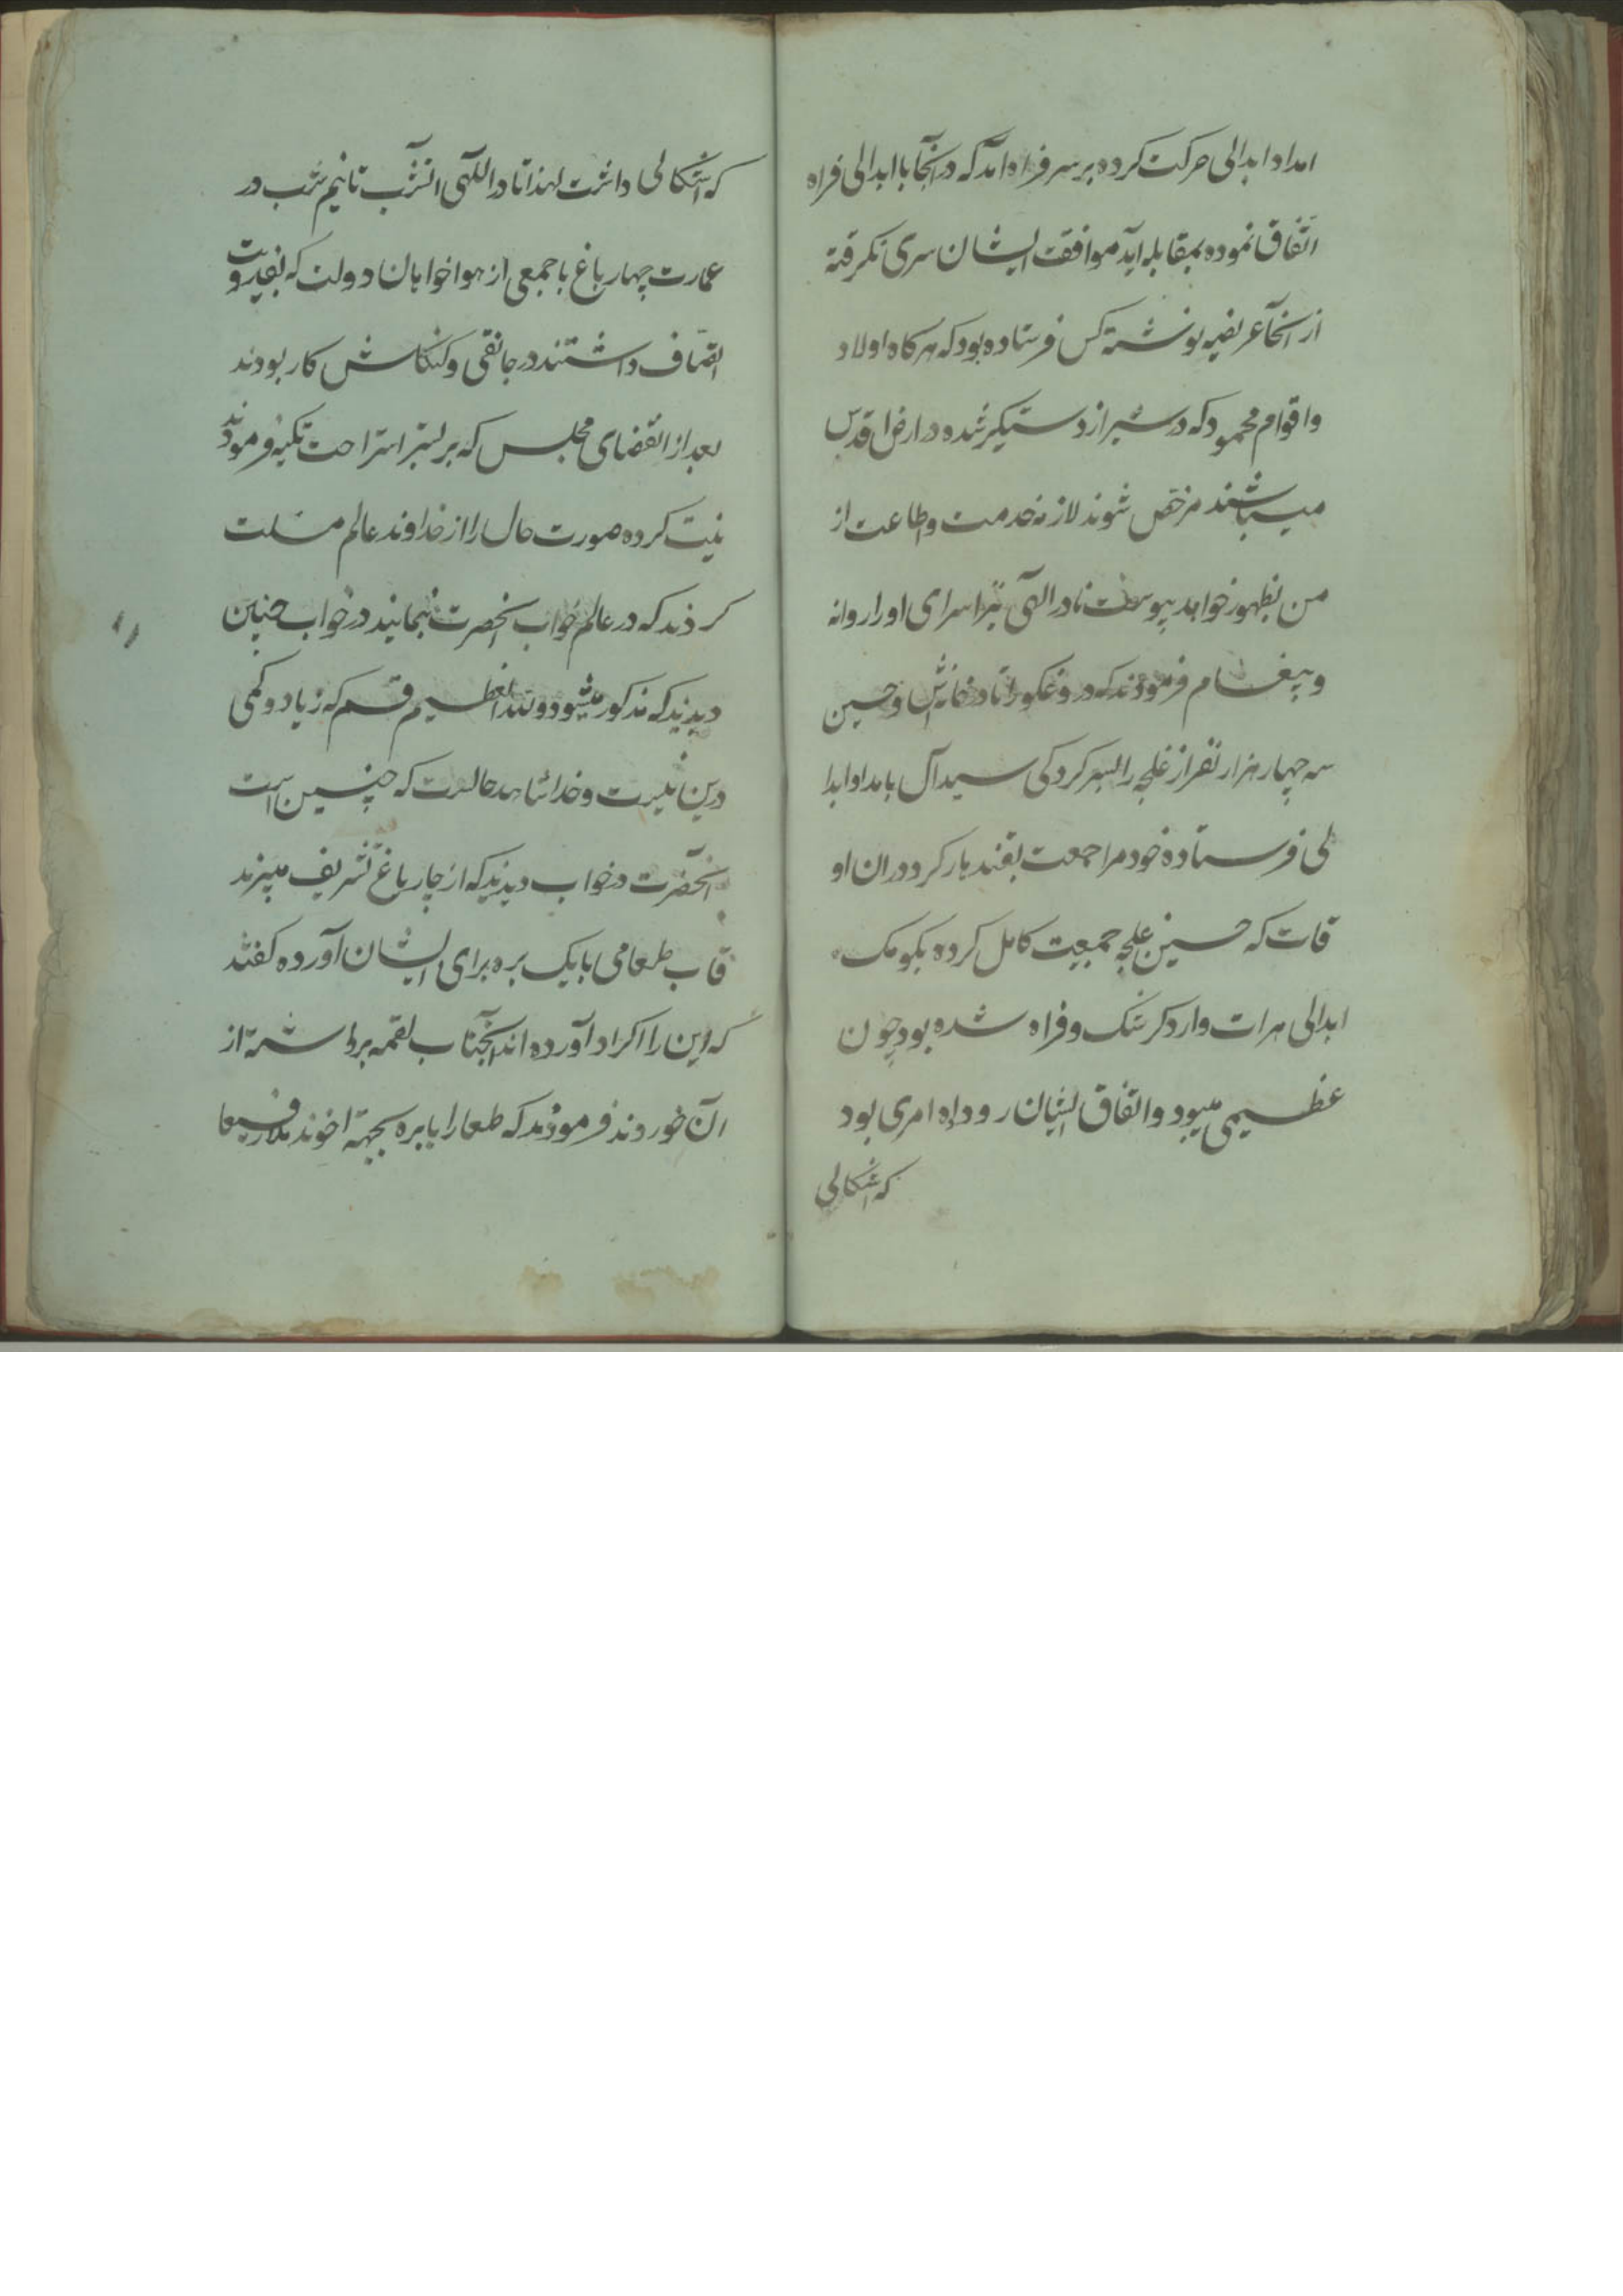 امداد ابدالی حرکت کرده بر سر فراه امد که در انجا با ابدالی فراه
اتّفاق نموده بمقابله آید موافقت ایشان سری نکرفته
از انجا عریضه نوشته کس فرستاده بود که هرکاه اولاد
و اقوام محمود که در شیراز دستکیر شده در ارض اقدس
میباشند مرخص شوند لازمه خدمت و اطاعت از
من بظهور خواهد پیوست نادر الهی نیز اسرای او را روانه
و پیغام فرمودند که دروغکو را تا در خانه‌اش و حسین
سه چهار هزار نفر از غلجه را بسرکردکی سیدال بامداد ابدا
لی فرستاده خود مراجعت بقندهار کرد در ان او
قات که حسین غلجه جمعیت کامل کرده بکومک
ابدالی هرات وارد کرشک و فراه شده بود چون
عظیمی میبود و اتفاق ایشان رو داده امری بود
که اشکالی
که اشکالی داشت لهذا نادر اللهی انشب تا نیم شب در
عمارت چهار باغ با جمعی از هوا خواهان دولت که
اتصاف داشتند در جانقی و کنکاش کار بودند
بعد از انقضای مجلس که بر بستر استراحت تکیه فرمودند
نیت کرده صورت حال را از خداوند عالم مسئلت
کردند که در عالم خواب بانحضرت بنمایند در خواب چنین
دیدند که مذکور میشود و لله العظیم قسم که زیاد و کمی
درین نیست و خدا شاهد حالست که چنین است
انحضرت در خواب دیدند که از چار باغ تشریف میبرند
قاب طعامی با یک بره برای ایشان آورده کفتند
که این را اکراد آورده‌اند آنجناب لقمه برداشته از
ان خوردند فرمودند که طعام را با بره بجهة اخوند ملا رفیعا